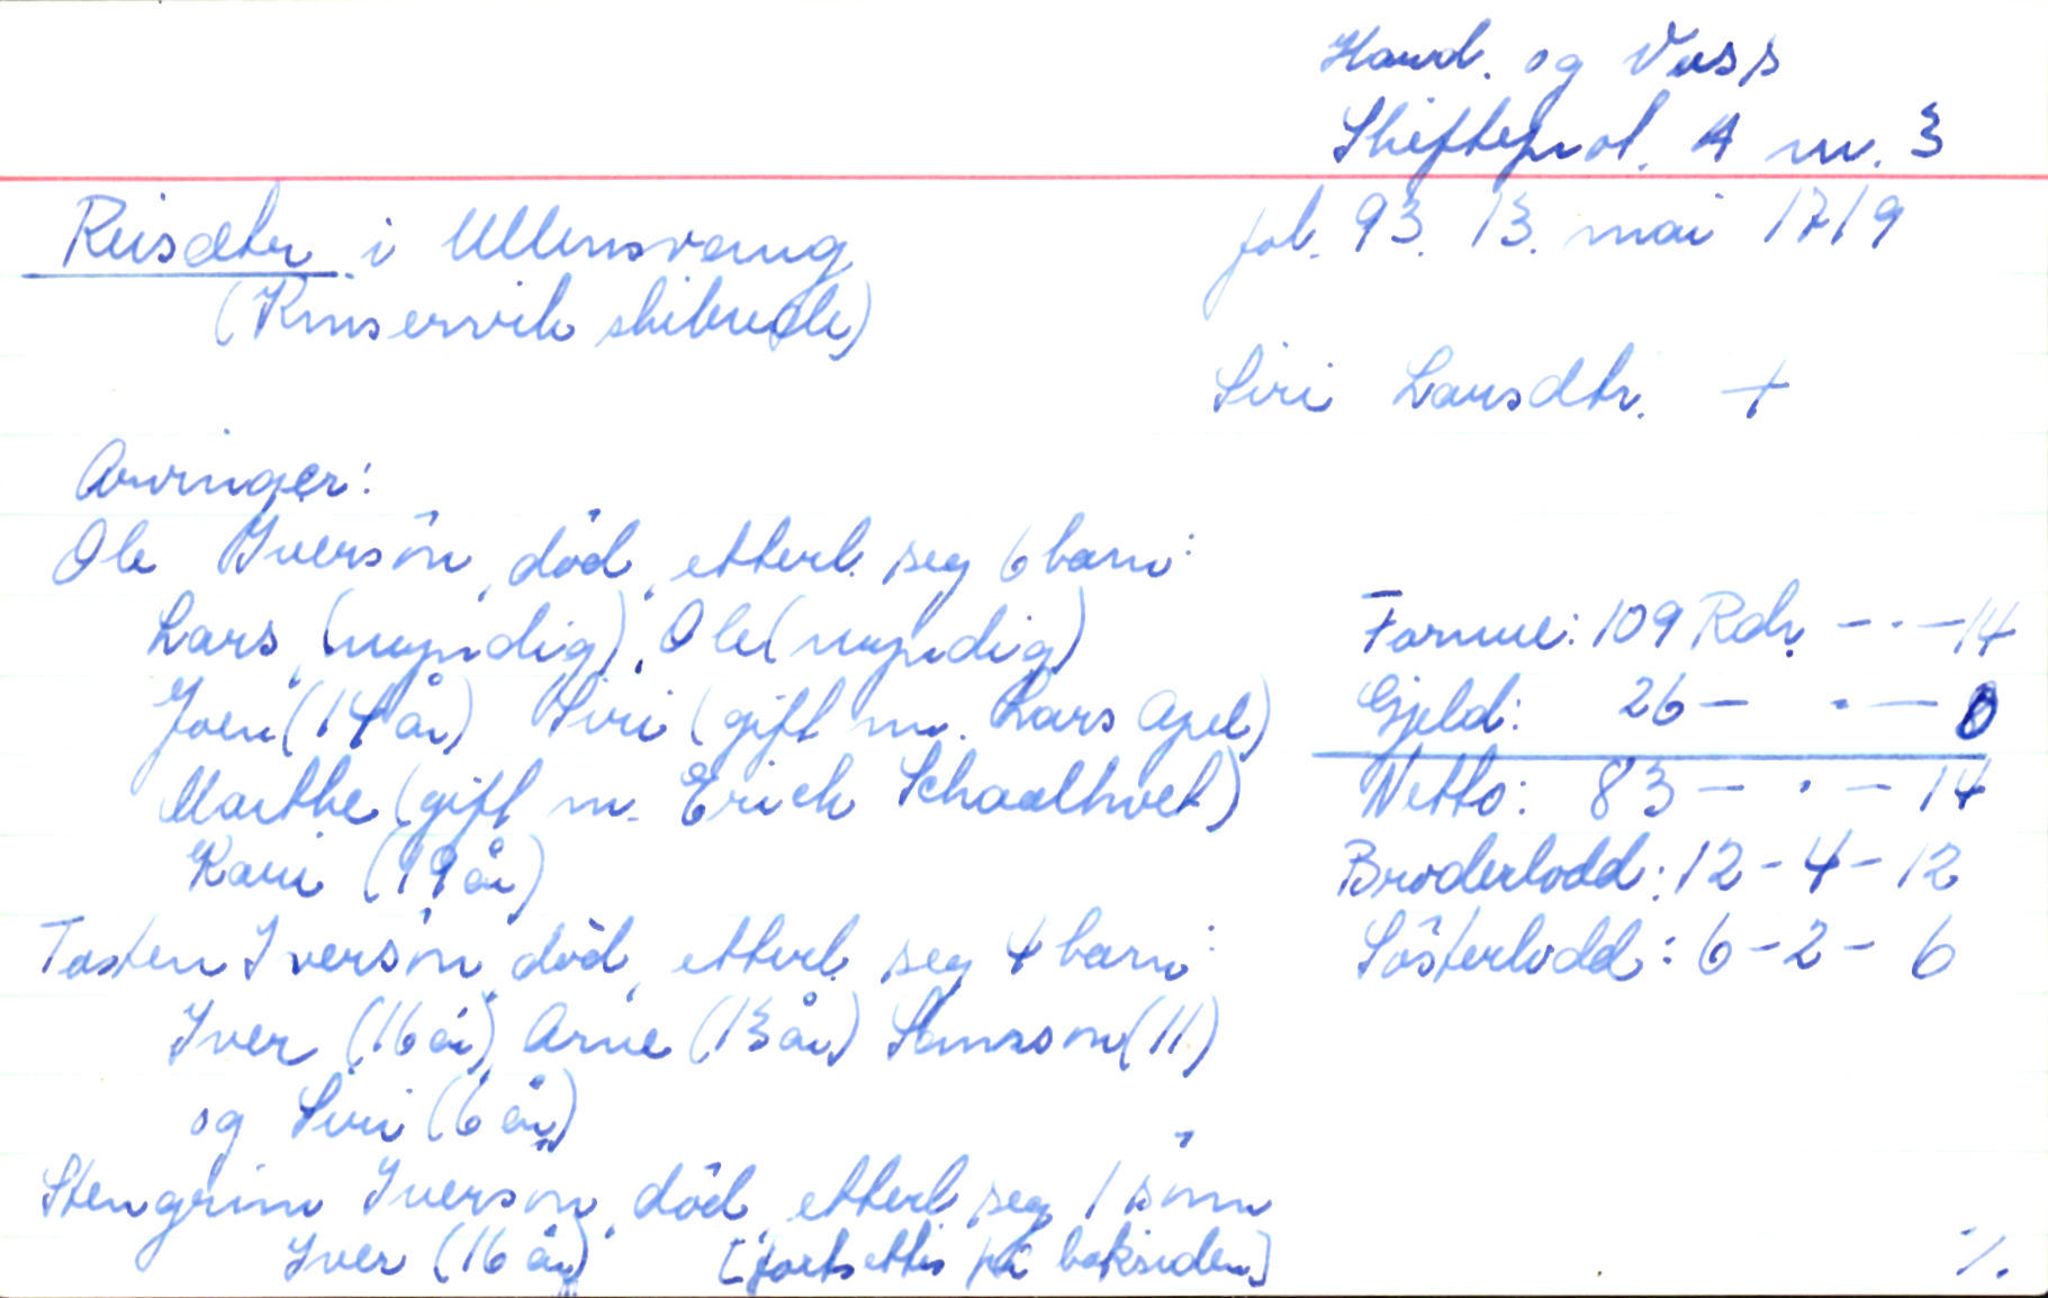 Hard. og Voss
Skifteprot. A nr. 3
Reisæter i Ullensvang
fol. 93. 13. mai 1719
(Kinservik skibrede)
Siri Larsdtr. +
Arvinger:
Ole Iversön, död, etterl. seg 6 barn:
Lars (myndig), Ole (myndig)
Joen (14 år) Siri (gift m. Lars Apel)
Marthe (gift m. Erich Schaalthvet)
Kari (19 år)
Tosten Iversön, död, etterl. seg 4 barn:
Iver (16 år) Arne (13 år) Samson (11)
og Siri (6 år)
Stengrim Iversön, död, etterl. seg 1 sönn
Iver (16 år) [fortsettes på baksiden]
Formue: 109 Rdr. - - - 14
Gjeld: 26 - . - 0
Netto: 83 - . - 14
Broderlodd: 12 - 4 - 12
Sösterlodd: 6 - 2 - 6
./.